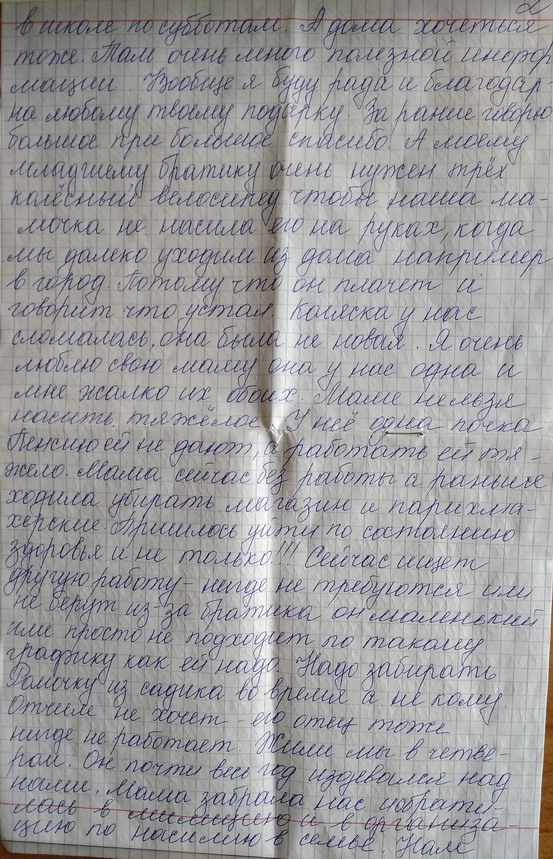 2
в школе по субботам. А дома хочеться
тоже. Там очень много полезной инфор
мации. Вообще я буду рада и благодар
на любому твоему подарку. За рание говорю
большое при большое спасибо. А моему
младшему братику очень нужен трёх
колёсный велосипед чтобы наша ма-
мочка не насила его на руках, когда
мы далеко уходим из дома например
в город. Потому что он плачет и
говорит что устал. Коляска у нас
сломалась, она была не новая. Я очень
люблю свою маму она у нас одна и
мне жалко их обоих. Маме нельзя
насить тяжёлое. У неё одна почка
Пенсию ей не дают, а работать ей тя-
жело. Мама сейчас без работы а раньше
ходила убирать магазин и парихма-
херские Пришлось уйти по состоянию
здоровья и не только!!! Сейчас ищет
другую работу - нигде не требуются или
не берут из-за братика он маленький
или просто не подходит по такому
графику как ей надо. Надо забирать
Ромочку из садика во время а не кому
Отчим не хочет - его отец тоже
нигде не работает. Жили мы в четве-
ром. Он почти весь год издевался над
нами. Мама забрала нас и обрати
лась в милицию и в организа-
цию по насилию в семье. Нам